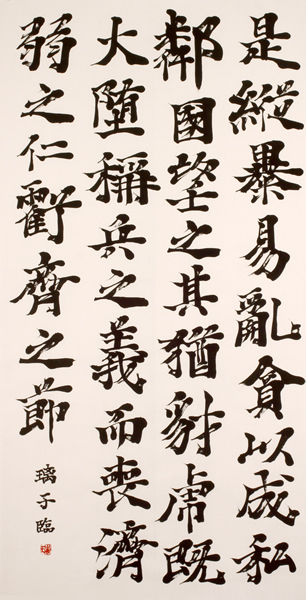 是縱暴易亂貪以成私
鄰國望之其猶豺虎既
大堕稱兵之義而喪濟
弱之仁虧齊之節
璃子臨